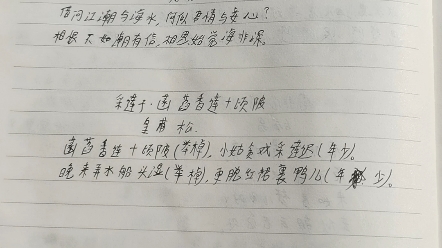 借问江潮与海水,何似君情与妾心?
相恨不如潮有信,相思始觉海非深。
采莲子·菡萏香连十顷陂
皇甫松
菡萏香连十顷陂(举棹),小姑贪戏采莲迟(年少)。
晚来弄水船头湿(举棹),更脱红裙裹鸭儿(年少)。